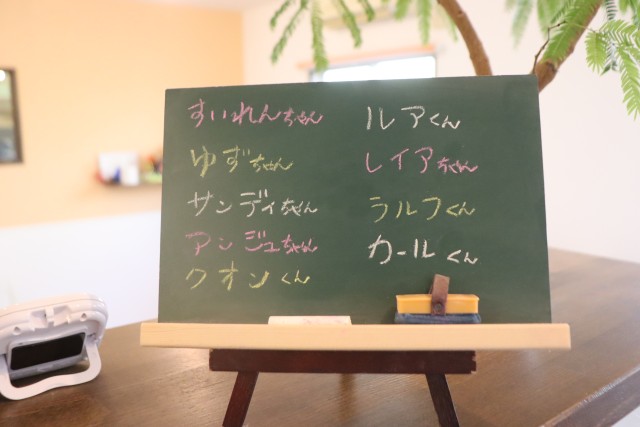 すいれんちゃん
ゆずちゃん
サンディちゃん
アンジュちゃん
クオンくん
ルアくん
レイアちゃん
ラルフくん
カールくん